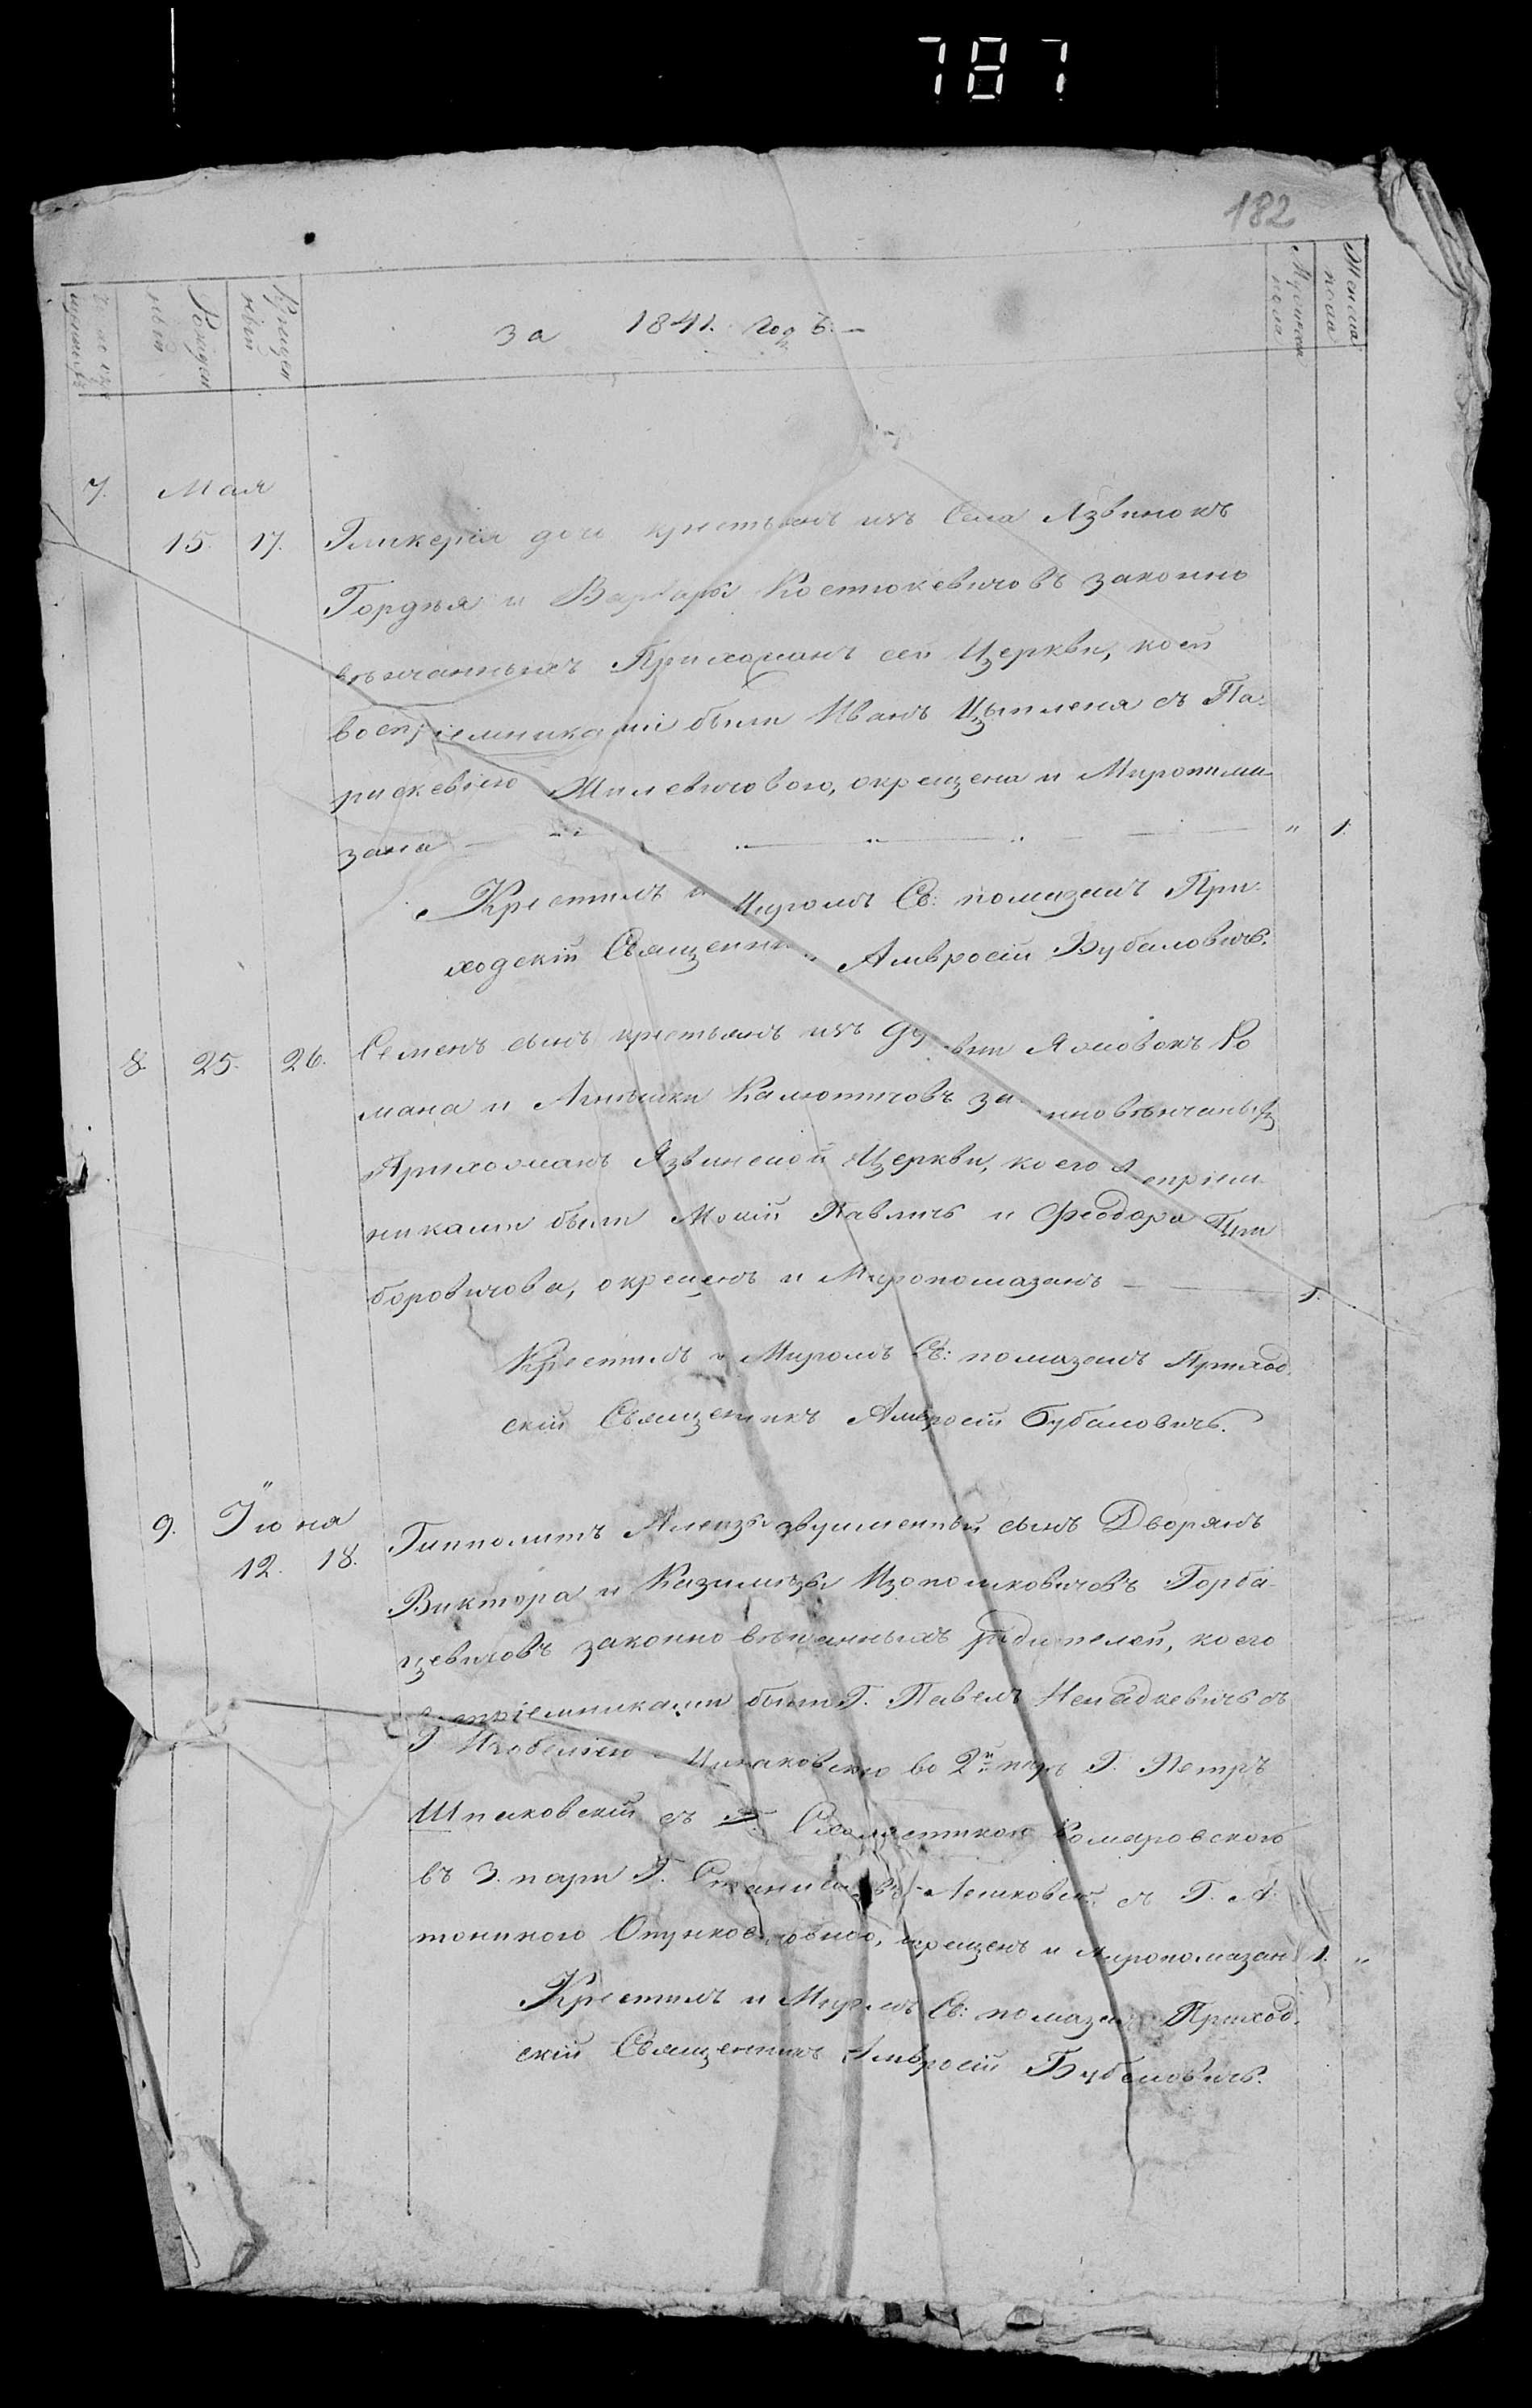 787
182
Рожден
ныи
Крещен
ныи
за 1841. годъ. —
Мужеска
пола
Женска
пола
7. Мая
15. 17. Гликерія дочь крестьянъ изъ Села Язвинокъ
Гордѣя и Варвары Костюкевичовъ законно
вѣнчанныхъ Прихожанъ сей Церкви, коей
воспріемниками были Иванъ Цыплена съ Па-
раскевіею Жилевичовою, окрещена и Миропома-
зана — " 1.
Крестилъ и Муромъ Св: помазалъ При-
ходскій Священникъ Амвросій Бубаловичъ.
8. 25. 26. Семенъ сынъ крестьянъ изъ Яхновокъ Ро
мана и Агнѣшки Калютичовъ за нновѣнчаныхъ
Прихожанъ Язвинской Церкви, коего спріем-
никами были Мокій Павличъ и Феодора
боровичова, окрещенъ и Миропомазанъ — 1.
Крестилъ и Миромъ Св: помазалъ Приход-
скій Священникъ Амвросій Бубаловичъ.
9. Іюня
12. 18. Гипполитъ двуименный сынъ Дворянъ
Виктора и Казимѣры Горба-
цевичовъ законно вѣнчанныхъ родителей, коего
спріемниками были Г. Павелъ съ
Г. во 2й парѣ Г. Петръ
Шпаковскій съ Г. Схоластикою Комаровскою
въ 3. пари Г. Станиславъ съ Г. А
тониною крещенъ и миропомазан 1. "
Крестилъ и Муромъ Св: помазалъ Приход-
скій Священникъ Амвросій Бубаловичъ.